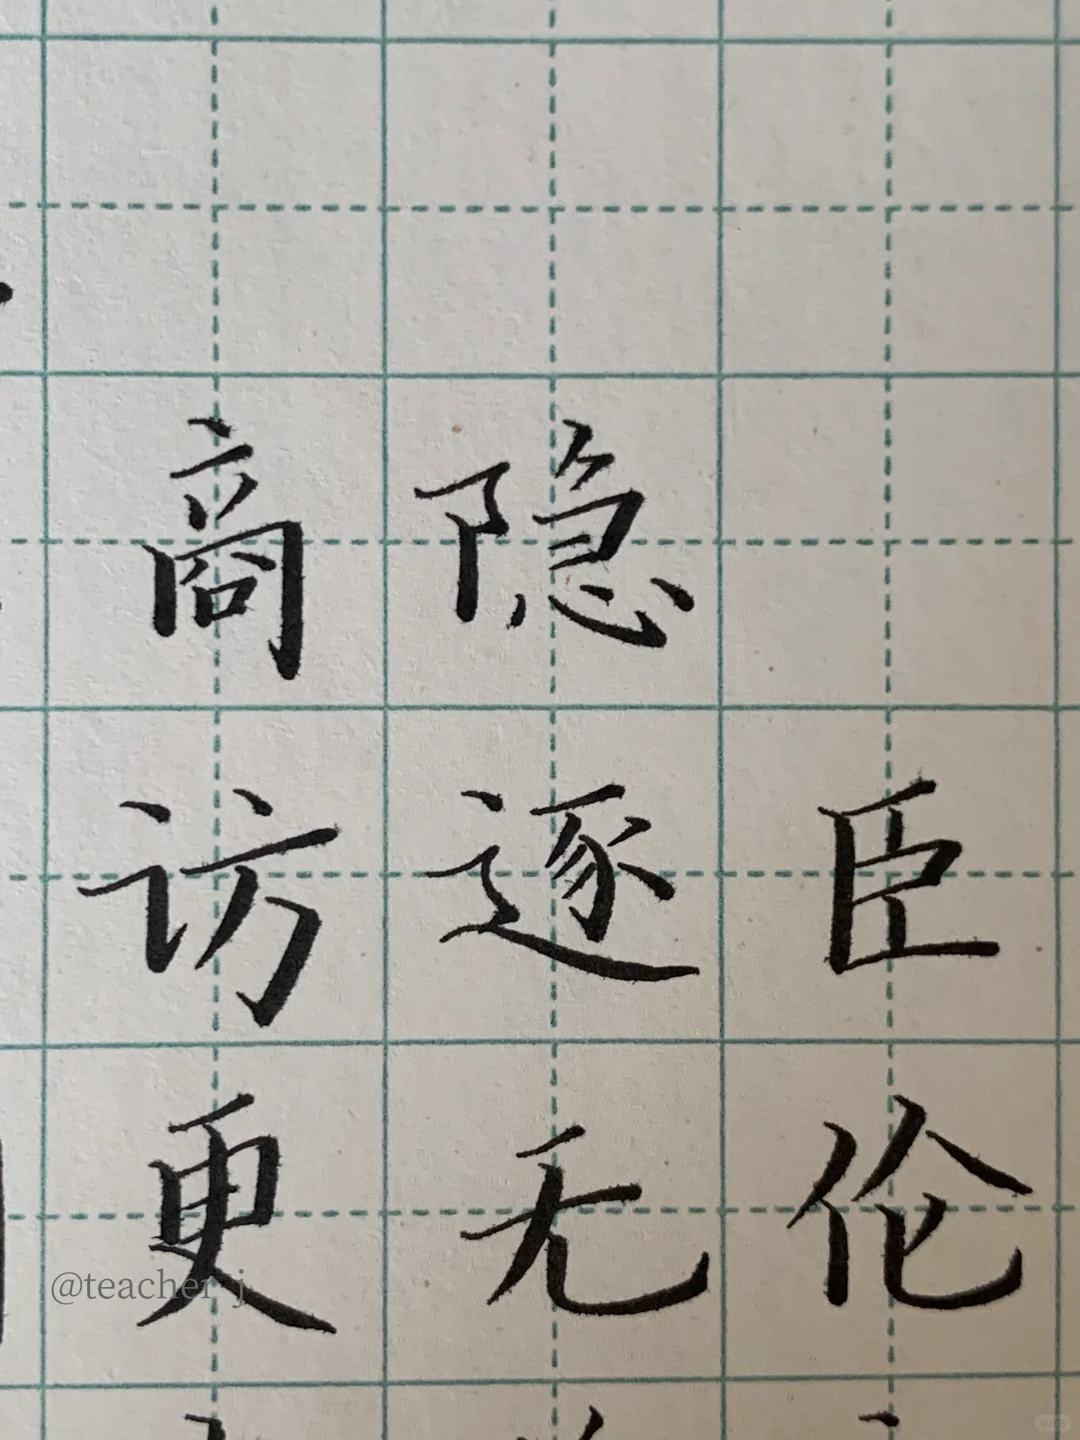 商隐
访逐臣
更无伦
@teacher j